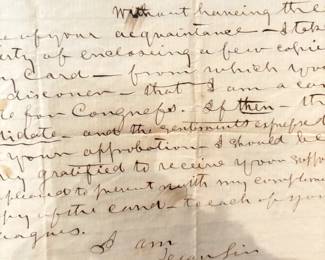 Without haveing the
of your acquaintance - I take
erty of encloseing a few copies
y Card - from which you
discover - that I am a can
te for Congress. If then - th
didate - and the sentiments expressed
your approbation - I should be
hly gratified to receive your suppo
pleased to present with my complime
py of the card - to each of your
leagues.
I am